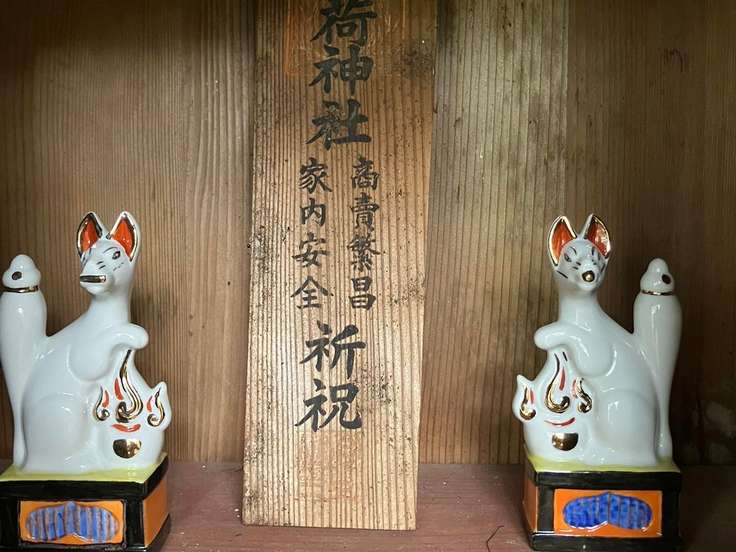 荷神社
商賣繁昌
家内安全
祈祝